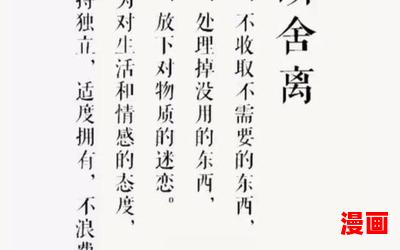 舍离
不收取不需要的东西，
处理掉没用的东西，
放下对物质的迷恋。
对生活和情感的态度，
独立，适度拥有，不浪
漫画